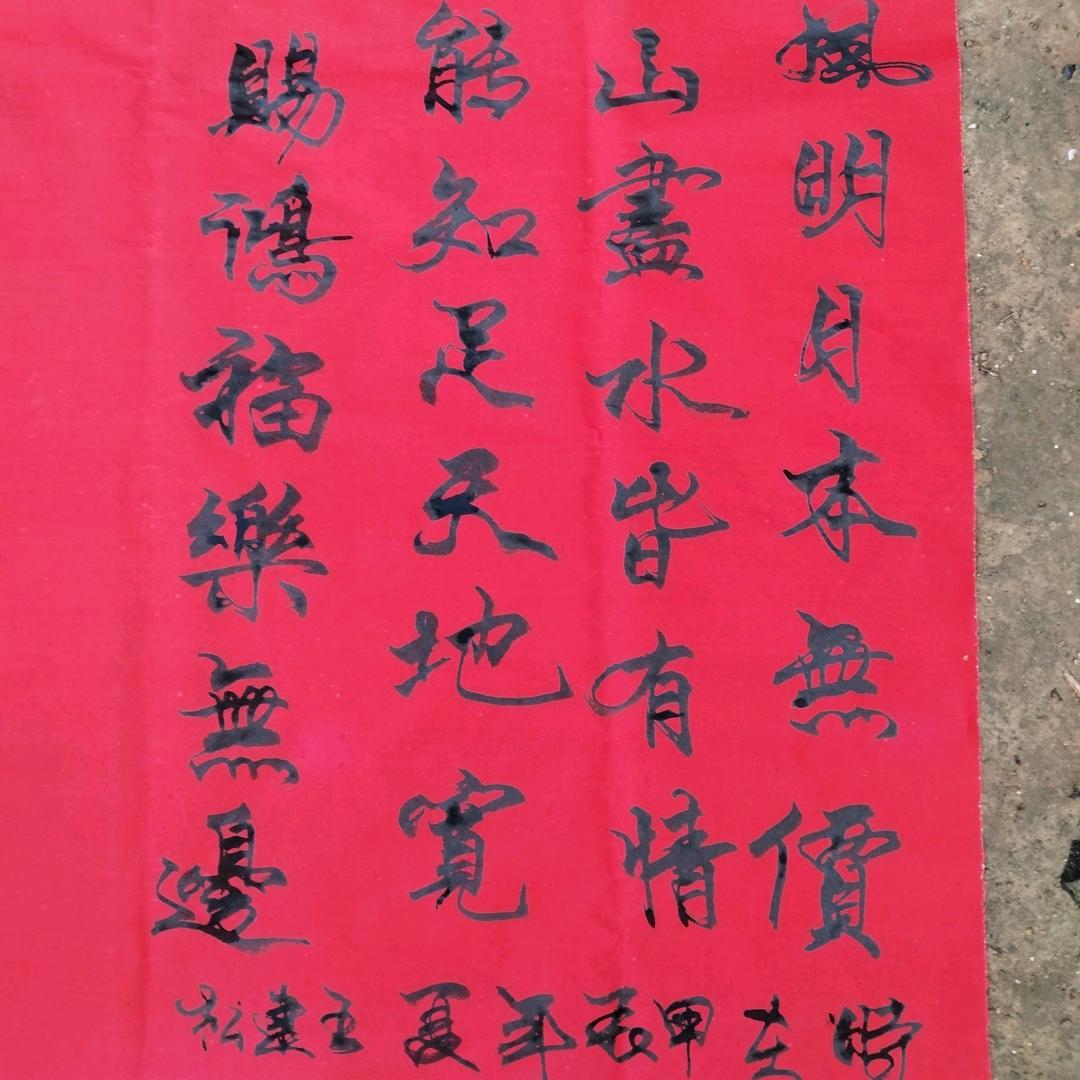 風明月本無價
山盡水皆有情
能知足天地寬
賜鴻福樂無邊
時在甲辰年夏王建松